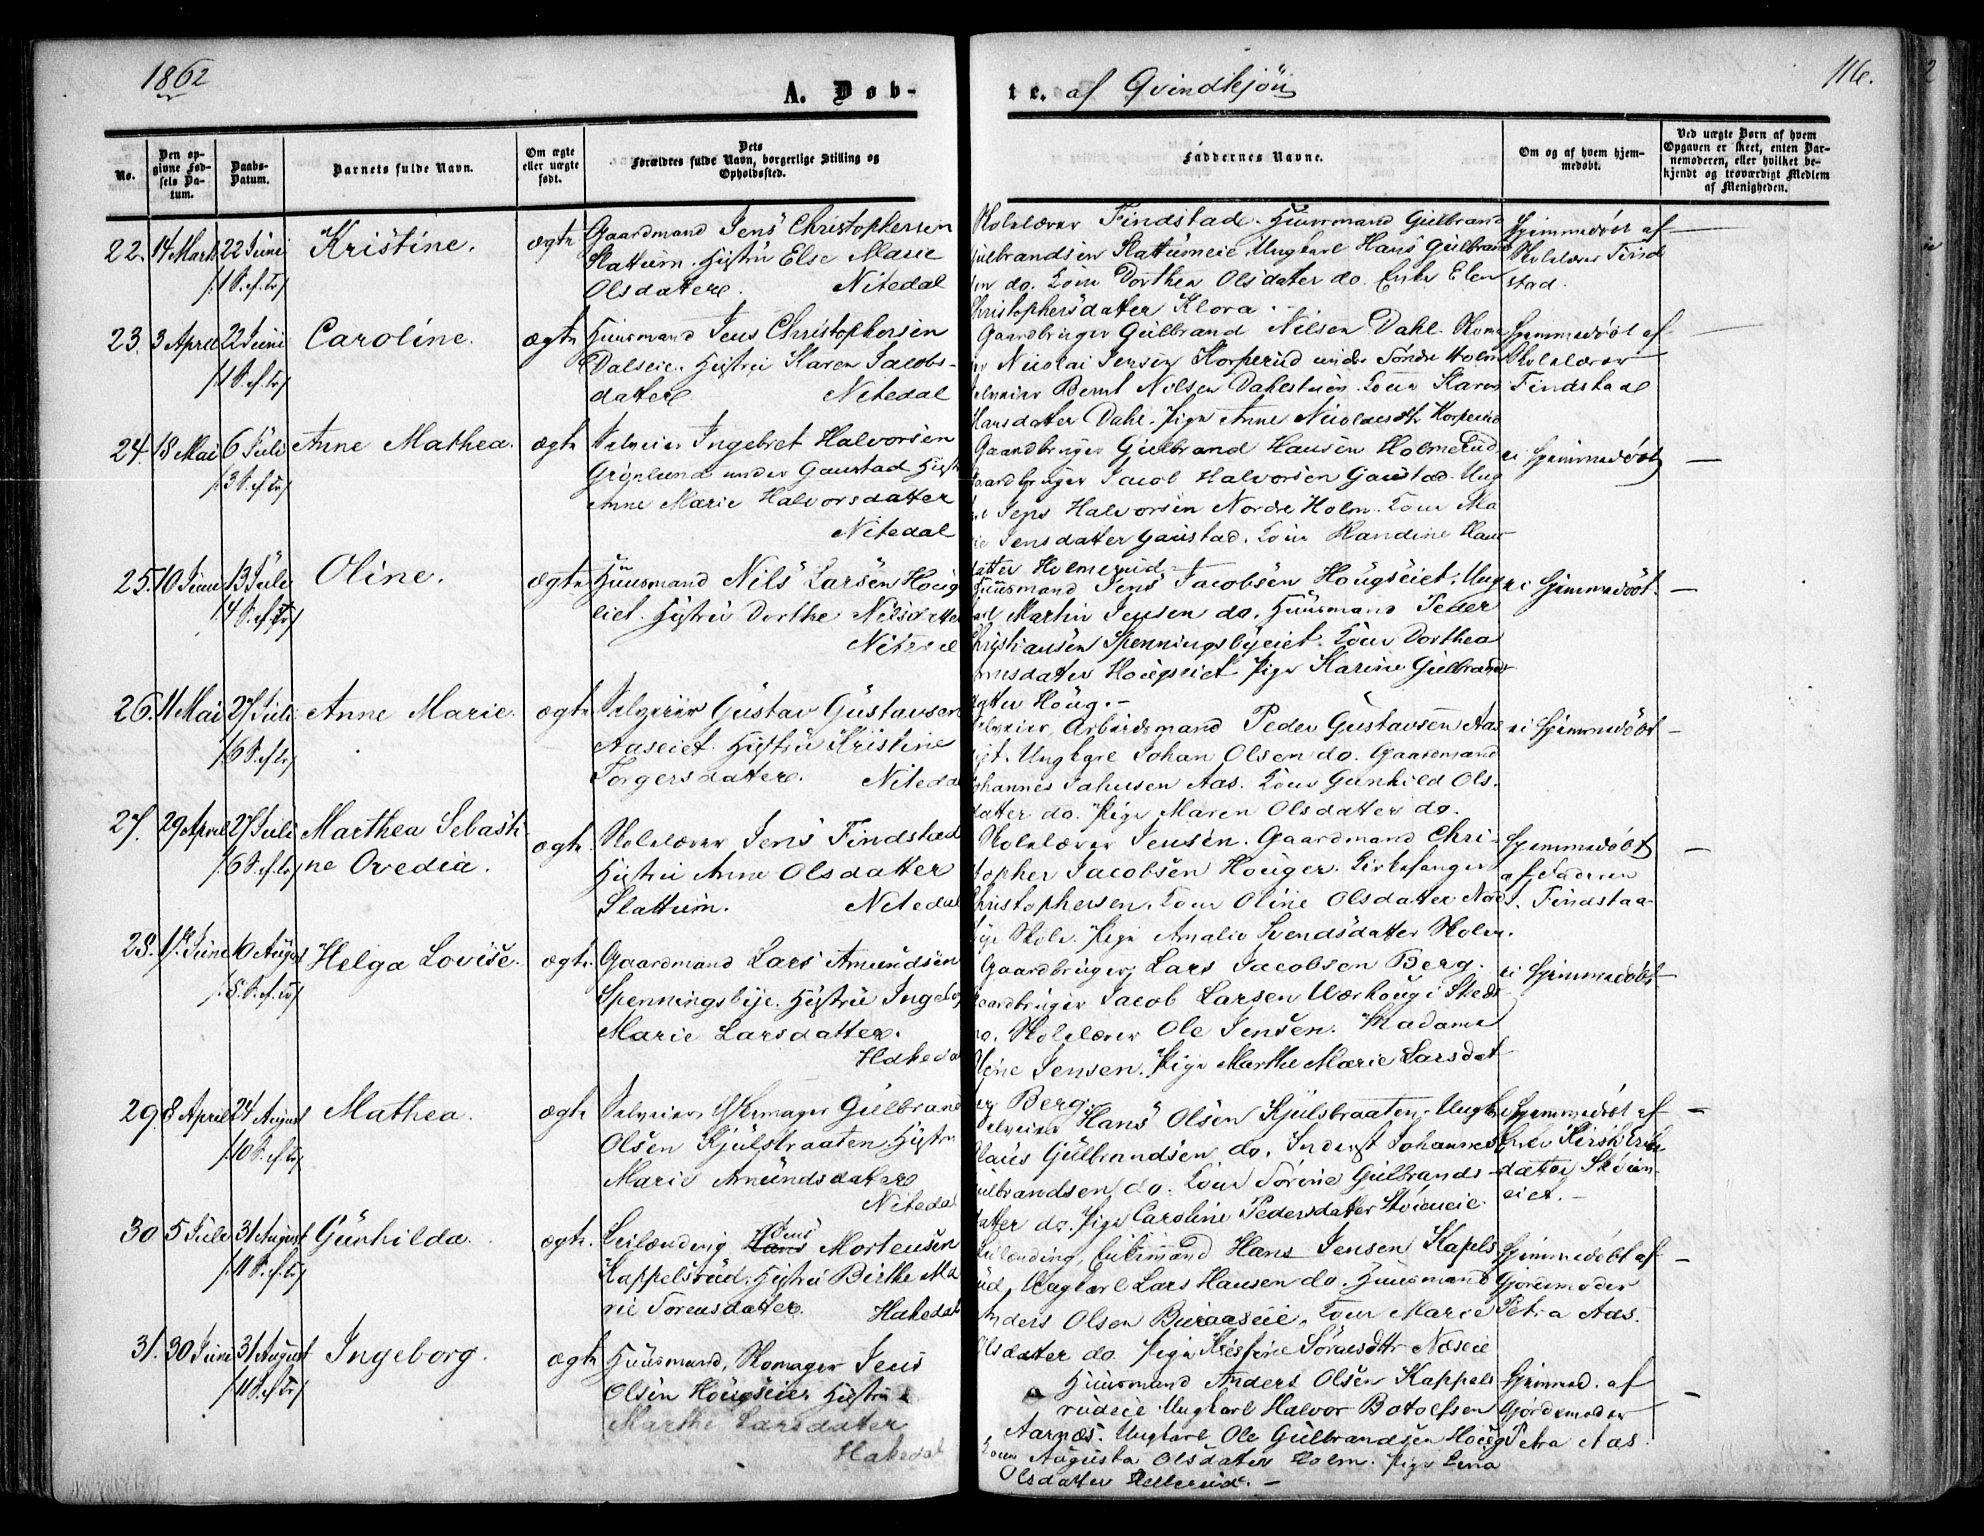 1862
A. Døb-
te. af Qvindkjön
116.
No.
Den op-
givne Fød-
sels Da-
tum.
Daabs-
Datum.
Barnets fulde Navn.
Om ægte
eller uægte
født.
Dets
Forældres fulde Navn, borgerlige Stilling og
Opholdssted.
Faddernes Navne.
Om og af hvem hjem-
medøbt.
Ved uægte Børn af hvem
Opgaven er skeet, enten Bar-
nemoderen, eller hvilket be-
kjendt og troværdigt Medlem
af Menigheden.
22. 14 Marts 22 Juni Kristine. ægte Gaardmand Jens Christophersen
/:1 S. ef. Tr:/ Slattum. Hustru Else Marie
Olsdatter. Nitedal
Skolelærer Findstad. Huusmand Gulbrand
Gulbrandsen Slattumeie, Ungkarl Hans Gulbrand
sen do. Kone Dorthea Olsdatter do. Enke Elen
Christophersdatter Klora.
Hjemmedöbt af
Skolelærer Find
stad.
23. 3 April 22 Juni Caroline. ægte Huusmand Jens Christophersen
/:1 S. ef. Tr:/ Dalseie. Hustru Karen Jacobs-
datter. Nitedal
Gaardbruger Gulbrand Nilsen Dahl. Skoma
ger Nicolai Jensen Korperud under Söndre Holm
Selveier Bernt Nilsen Dahlstuen. Kone Karen
Hansdatter Dahl. Pige Anne Nicolaisdtr Korperud
Hjemmedöbt af
Skolelærer
Findstad
24. 18 Mai 6 Juli Anne Mathea. ægte Selveier Ingebret Halvorsen
/:3 S. ef. Tr:/ Grönlund under Gaustad Hustr
Anne Marie Halvorsdatter
Nitedal
Gaardbruger Gulbrand Hansen Holmerud
Gaardbruger Jacob Halvorsen Gaustad. Ung
karl Jens Halvorsen Nordre Holm. Kone Ma
rie Jensdatter Gaustad. Kone Randine Hans
datter Holmerud.
ei Hjemmedöbt
25. 10 Juni 13 Juli Oline. ægte Huusmand Nils Larsen Houg
/:4 S. ef. Tr:/ eiet. Hustru Dorthe Nilsdatter
Nitedal
Huusmand Jens Jacobsen Hougseiet, Ung
karl Martin Jensen do. Huusmand Peder
Christiansen Spenningsbyeiet. Kone Dorthea
Hougseiet Pige Karine Gulbrands
datter Houg.
ei Hjemmedöbt.
26. 11 Mai 27 Juli Anne Marie. ægte Selveier Gustav Gustavsen
/:6 S. ef. Tr:/ Aaseiet. Hustru Kristine
Torgersdatter. Nitedal
Selveier, Arbeidsmand Peder Gustavsen Aas
eiet. Ungkarl Johan Olsen do. Gaardmand
Johannes Aas. Kone Gunhild Ols-
datter do. Pige Maren Olsdatter do.
ei Hjemmedöbt
27. 29 April 27 Juli Marthea Sebasti ægte. Skolelærer Jens Findstad
/:6 S. ef. Tr:/ ne Ovedia. Hustru Anne Olsdatter
Slattum. Nitedal
Skolelærer Jensen. Gaardmand Chri-
stopher Jacobsen Houger. Kirkesanger
Christophersen. Kone Oline Olsdatter
bye Skole. Pige Amalie Svendsdatter Skolen.
Hjemmedöbt
af Faderen
J. Findstad
28. 17 Juni 10 August Helga Lovise. ægte. Gaardmand Lars Amundsen
/:8 S. ef. Tr:/ Spenningsbye. Hustru Ingeborg
Marie Larsdatter.
Hakedal
Gaardbruger Lars Jacobsen Berg.
Gaardbruger Jacob Larsen Værhoug i Skeds
mo. Skolelærer Ole Jensen. Madame
Jensen. Pige Marthe Marie Larsdat
ter Berg.
ei Hjemmedöbt
29. 8 April 24 August Mathea. ægte Selveier, Skomager Gulbrand
/:10 S. ef. Tr:/ Olsen Kjulstraaten. Hustru
Marie Amundsdatter
Nitedal
Selveier Hans Olsen Kjulstraaten. Ungk
Claus Gulbrandsen do. Inderst Johannes
Gulbrandsen do. Kone Sörine Gulbrands-
datter do. Pige Caroline Pedersdatter Skoieneie
Hjemmedöbt af
Enke
datter Skoien-
eiet.
30 5 Juli 31 August Gunhilda. ægte. Leilænding Hans Jens Mortensen
/:11 S. ef. Tr:/ Kappelsrud. Hustru Birthe Ma
rie Sorensdatter. Hakedal
Leilænding, Hans Jensen Kapels
rud, Ungkarl Lars Hansen do. Huusmand
Anders Olsen Buraaseie. Kone Marie
Olsdatter do. Pige Kristine Sörensdtr Næseie
Hjemmedöbt af
Gjordemoder
Petra Aas.
31. 30 Juni 31 August Ingeborg. ægte Huusmand, Skomager Jens
/:11 S. ef. Tr:/ Olsen Hougseier Hustru
Marthe Larsdatter
Hakedal
Huusmand Anders Olsen Kappels
rudeie Ungkarl Halvor Botolfsen
Aarnæs. Ungkarl Ole Gulbrandsen Houg
Kone Augusta Olsdatter Holm. Pige Lina
Olsdatter Hellerud. —
Hjemmed. af
Gjordemoder
Petra Aas.